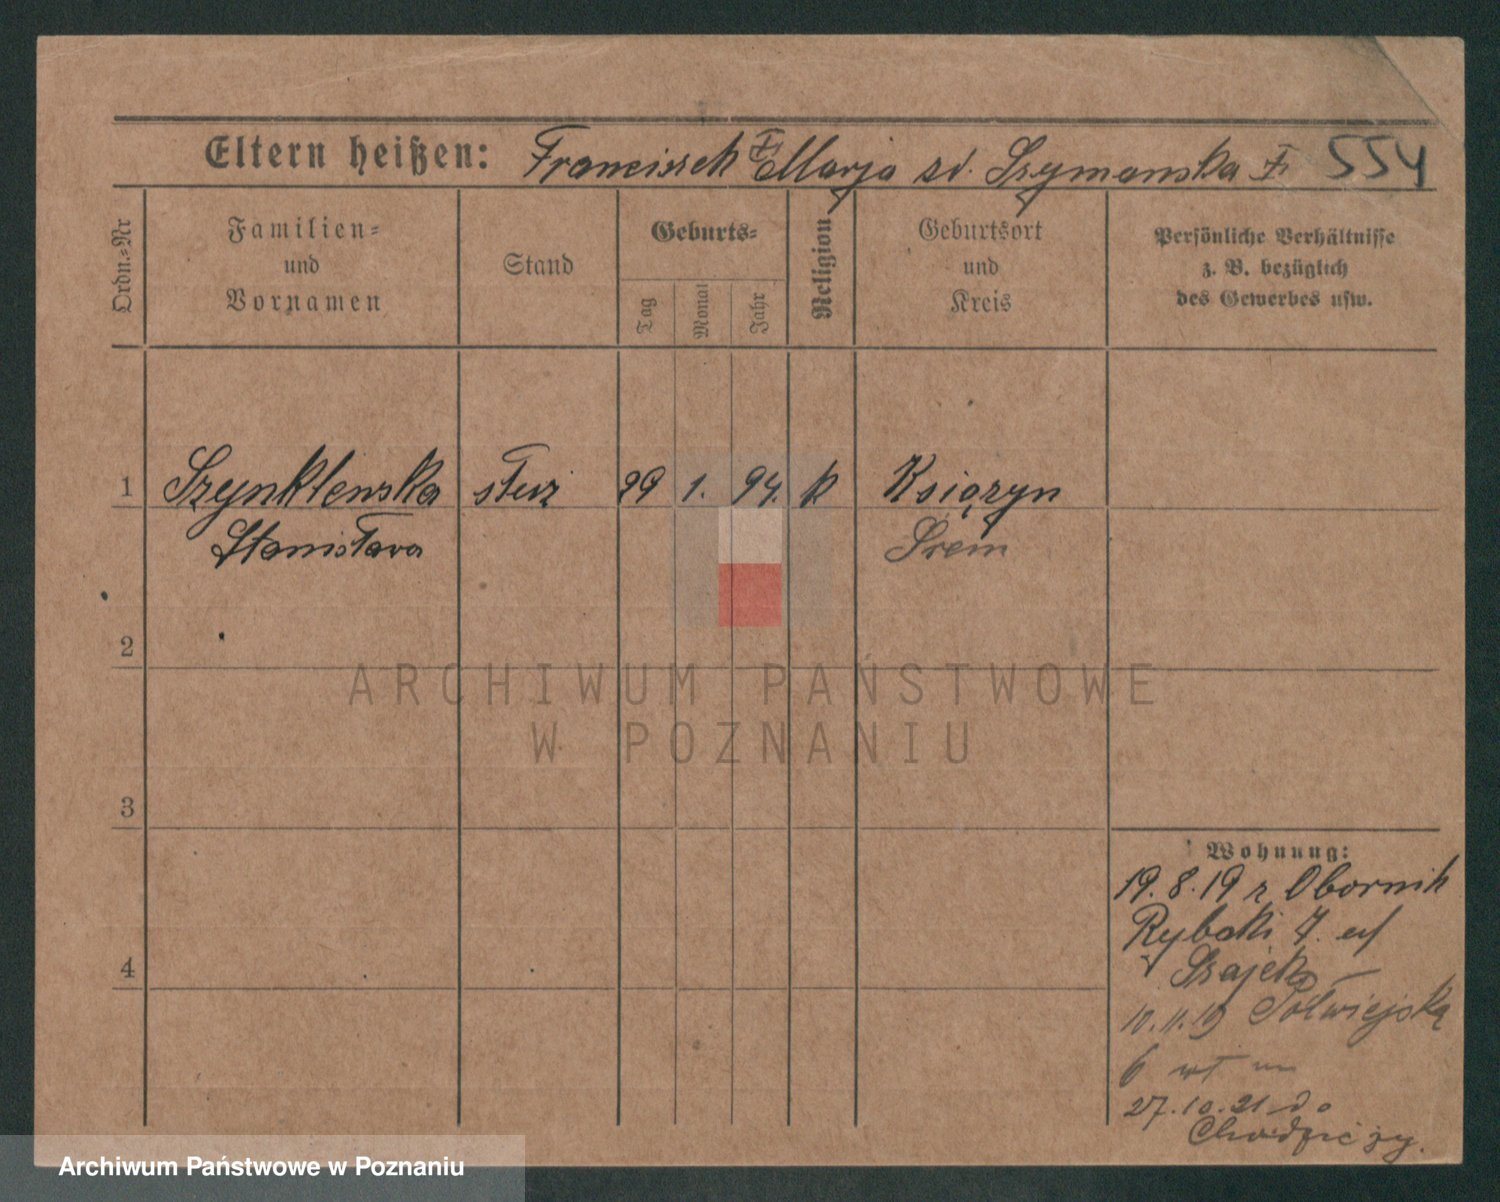 Eltern heißen: Franciszek Marja zd. Szymanska 554
Ordn.-Nr
Familien-
und
Vornamen
Stand
Geburts-
Tag
Monat
Jahr
Religion
Geburtsort
und
Kreis
Persönliche Verhältnisse
z. B. bezüglich
des Gewerbes usw.
1 Szynklewska służ 29 1. 94. k Książyn
Stanisława Śrem
2
ARCHIWUM PAŃSTWOWE
W POZNANIU
3
Wohnung:
19.8.19 z Obornik
Rybaki 7.
4
Szajek
10.11.19 Półwiejską
6
27.10.21 do
Chodzieży.
Archiwum Państwowe w Poznaniu